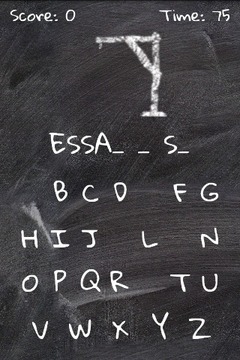 Score: 0 Time: 75
ESSA_ _ S_
B C D F G
H I J L N
O P Q R T U
V W X Y Z